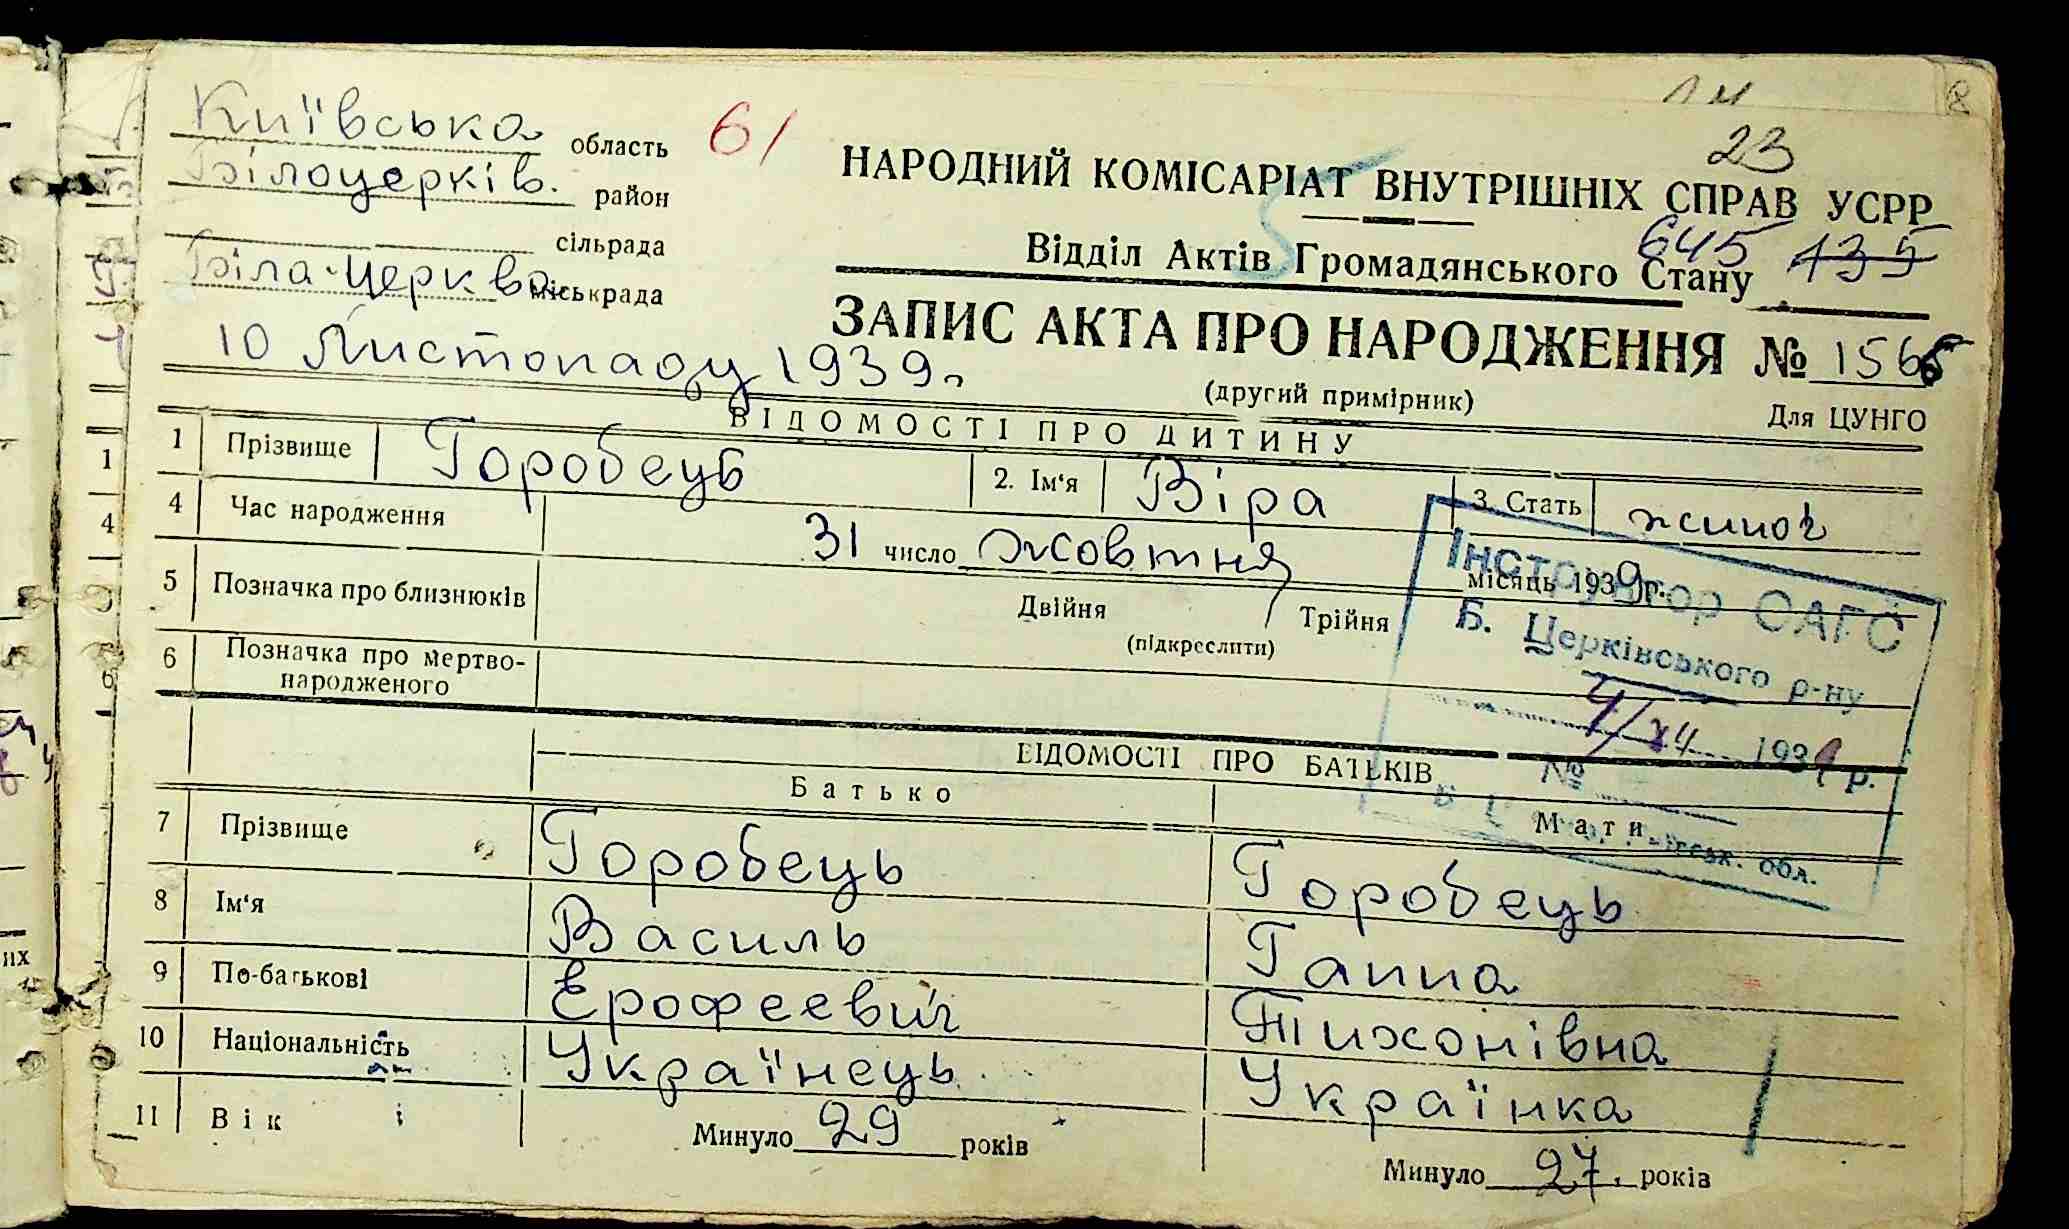 Київська область 61
23
Білоцерків. район
НАРОДНИЙ КОМІСАРІАТ ВНУТРІШНІХ СПРАВ УСРР
сільрада
645 135
Відділ Актів Громадянського Стану
Біла-Церква міськрада
ЗАПИС АКТА ПРО НАРОДЖЕННЯ № 1566
10 Листопаду 1939 р.
(другий примірник)
Для ЦУНГО
ВІДОМОСТІ ПРО ДИТИНУ
1 Прізвище Горобець 2. Ім'я Віра 3. Стать жіноч
4 Час народження 31 число жовтня місяць 1939 р.
5 Позначка про близнюків Двійня Трійня
(підкреслити)
6 Позначка про мертво-
народженого
Інструктор ОАГС
Б. Церківського р-ну
193 р.
№
обл.
ВІДОМОСТІ ПРО БАТЬКІВ
Батько Мати
7 Прізвище Горобець Горобець
8 Ім'я Василь Ганна
9 По-батькові Ерофеевич Тихонівна
10 Національність Українець Українка
11 Вік Минуло 29 років Минуло 27 років